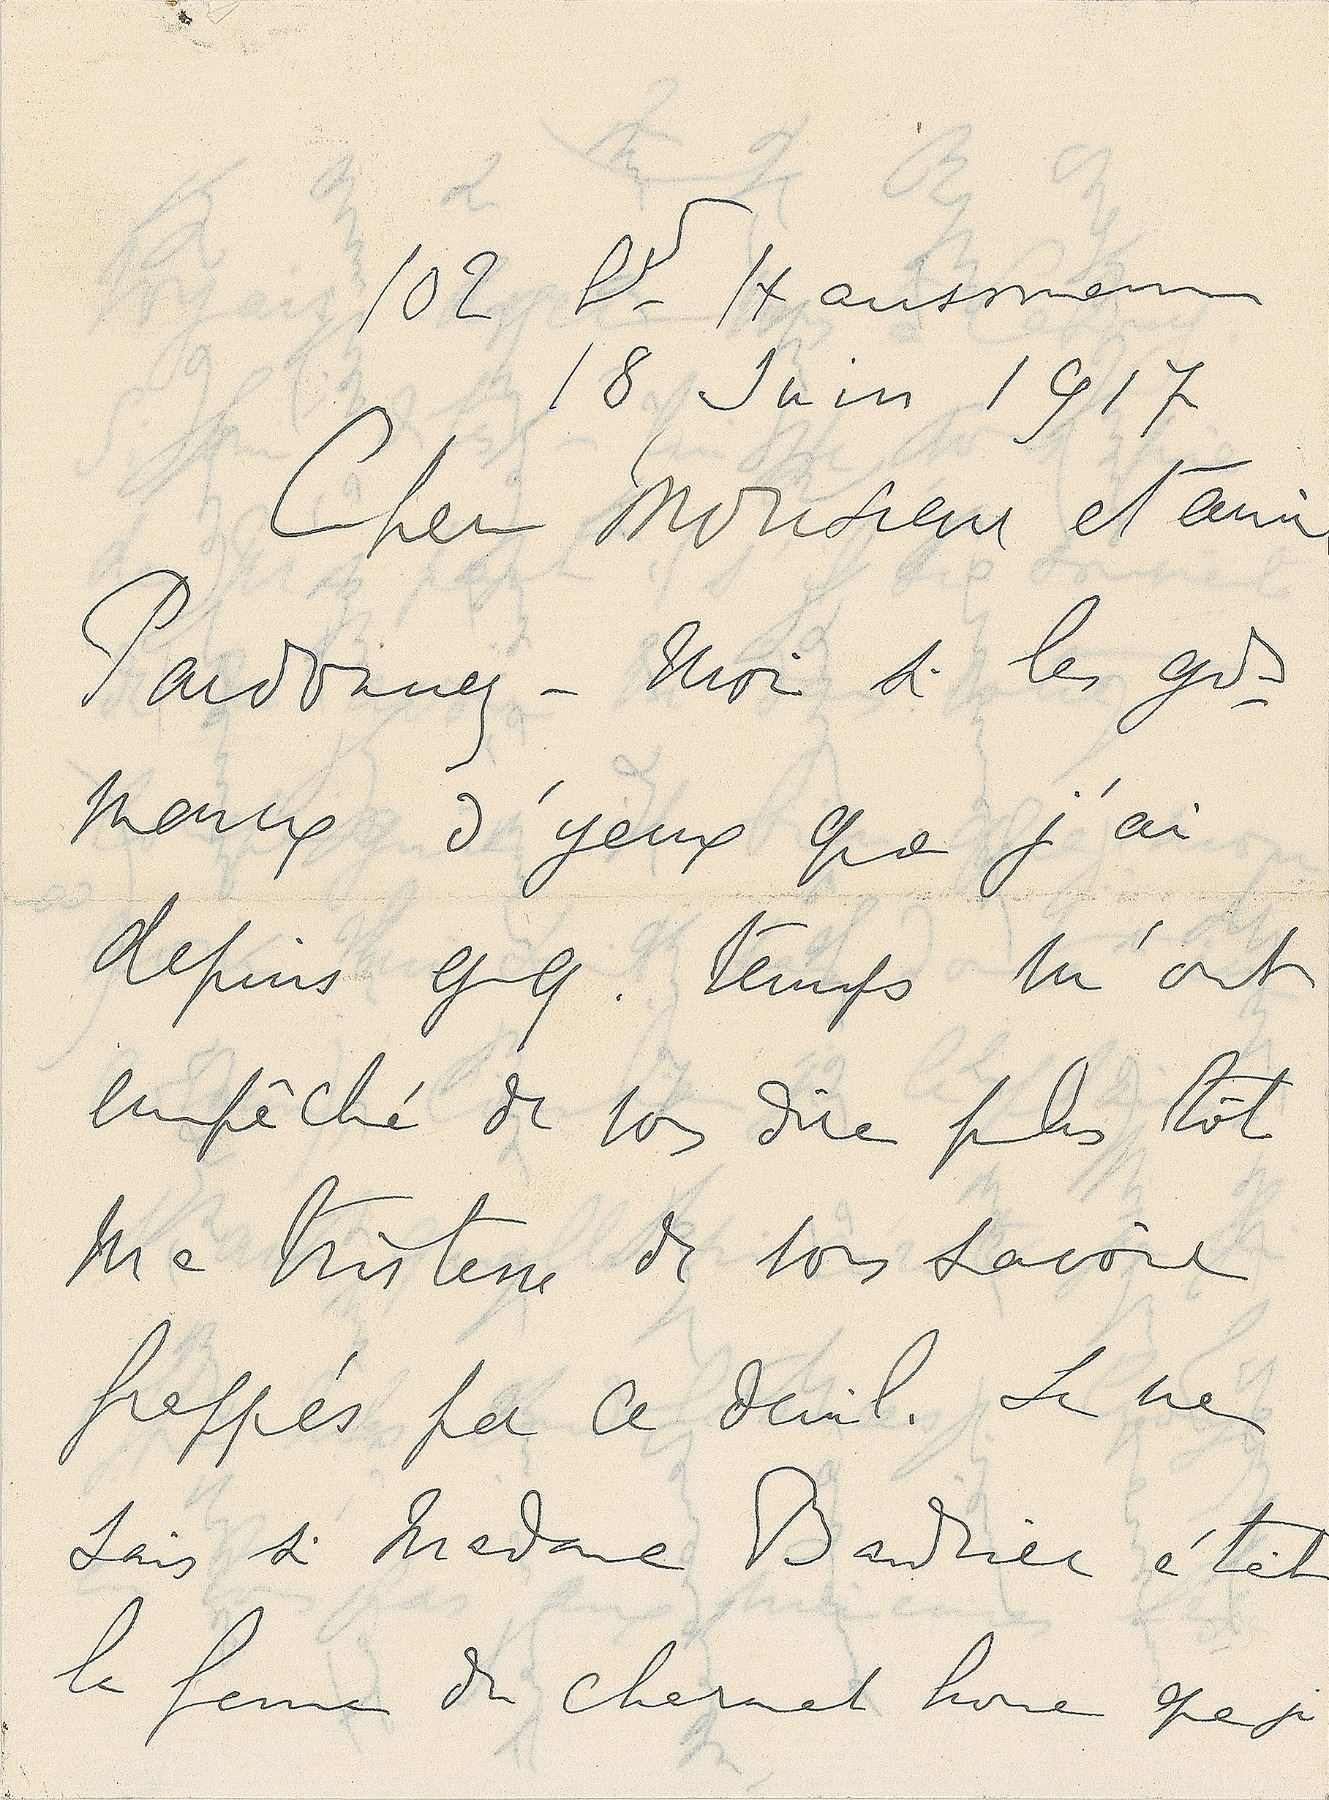 102 Bd Haussmann
18 Juin 1917
Cher Monsieur et ami
Pardonnez-moi si les gds
maux d'yeux que j'ai
depuis qq. temps m'ont
empêché de vous dire plus tôt
ma tristesse de vous savoir
frappés par ce deuil. Je ne
sais si Madame Baudrier était
la femme du charmant homme que je